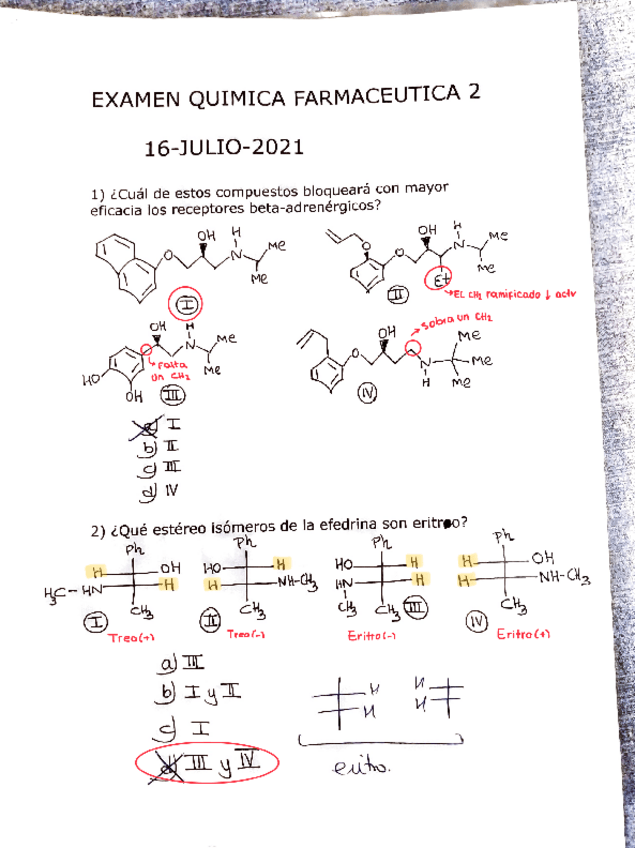 EXAMEN QUIMICA FARMACEUTICA 2
16-JULIO-2021
1) ¿Cuál de estos compuestos bloqueará con mayor
eficacia los receptores beta-adrenérgicos?
OH H
O N Me
Me
I
OH H
O O N Me
Me
Et
II
→EL CH₂ ramificado ↓ actv
OH H
N Me
Me
HO
OH
Falta
un CH₂
III
OH
O
→ sobra un CH₂
Me
N Me
H Me
IV
a) I
b) II
c) III
d) IV
2) ¿Qué estéreo isómeros de la efedrina son eritreo?
Ph Ph Ph Ph
H OH HO H HO H H OH
H₃C-HN H H NH-CH₃ HN H H NH-CH₃
CH₃ CH₃ CH₃ CH₃ CH₃
I II III IV
Treo(+) Treo(-) Eritro(-) Eritro(+)
a) III
b) I y II
c) I
d) III y IV
H H
H H
eritro.